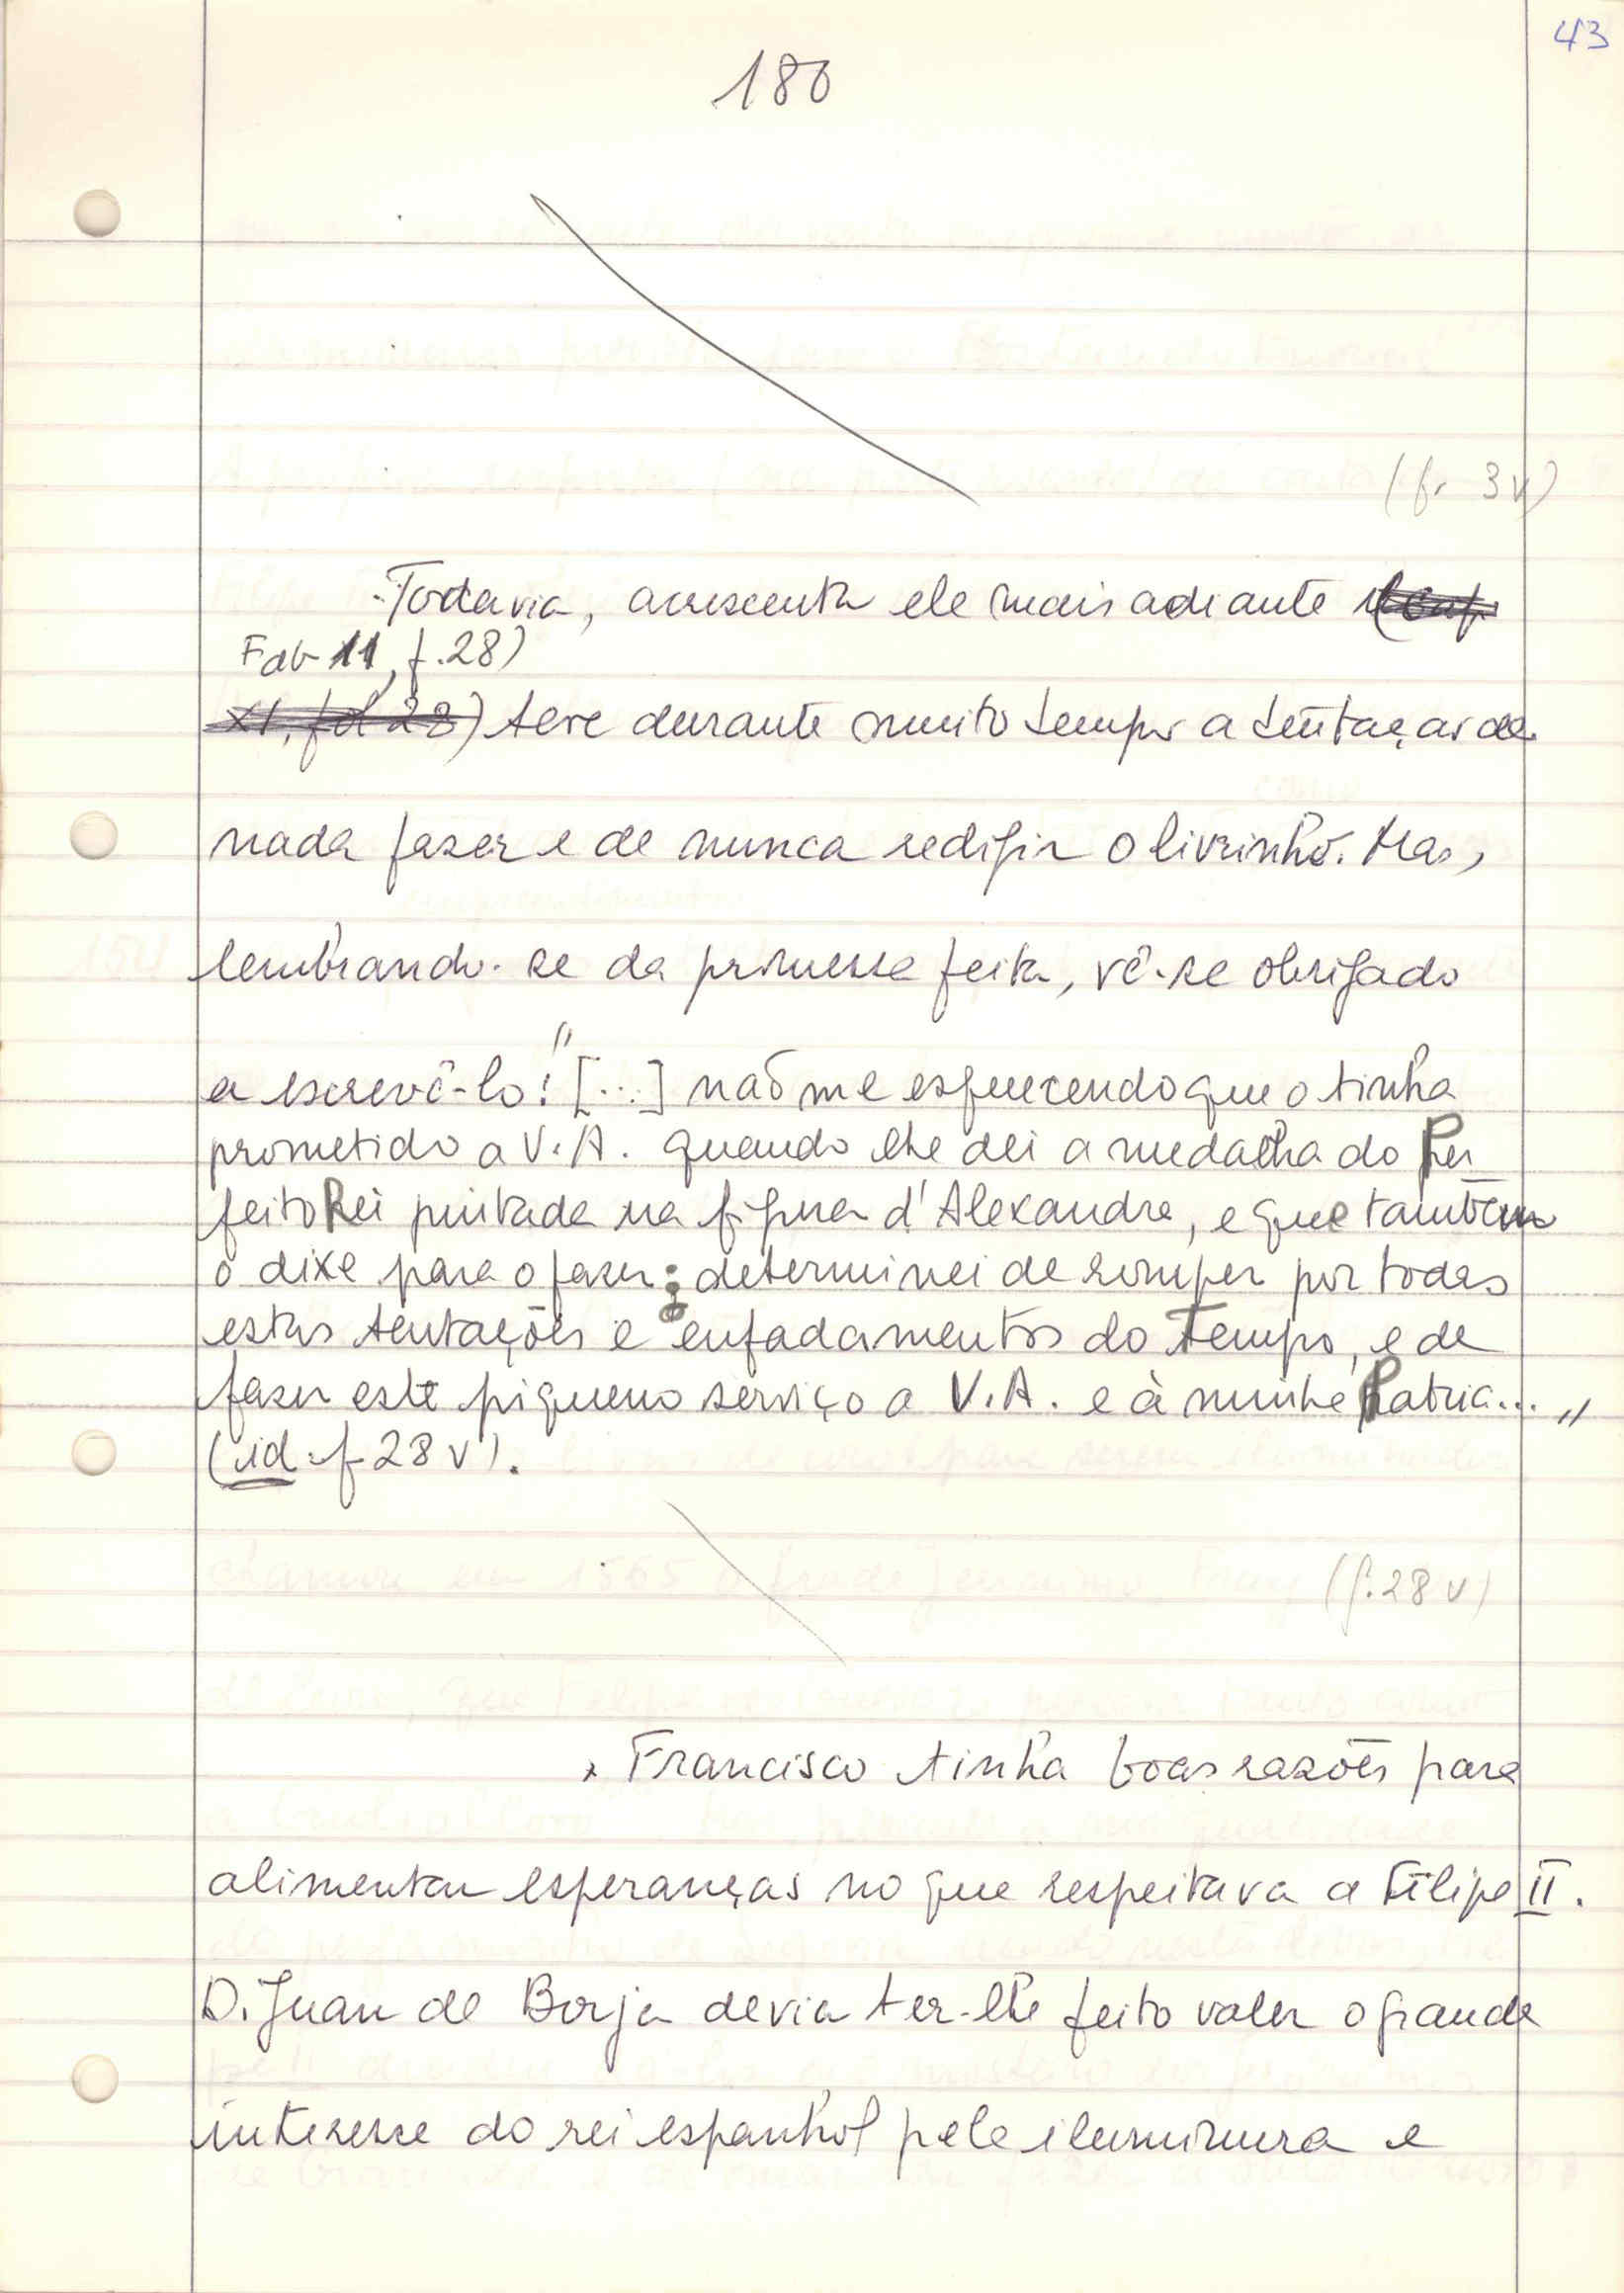 43
180
(f. 3v)
Todavia, acrescenta ele mais adiante (cap.
Fab 11, f.28)
XI, fol 28) teve durante muito tempo a tentação de
nada fazer e de nunca redigir o livrinho. Mas,
lembrando-se da promessa feita, vê-se obrigado
a escrevê-lo: "[...] não me esquecendo que o tinha
prometido a V.A. quando lhe dei a medalha do Per
feito Rei pintada na figura d'Alexandre, e que também
o dixe para o fazer; determinei de romper por todas
estas tentações e enfadamentos do Tempo, e de
fazer este piqueno serviço a V.A. e à minha Patria..."
(id. f 28 v).
(f. 28 v)
Francisco tinha boas razões para
alimentar esperanças no que respeitava a Filipe II.
D. Juan de Borja devia ter-lhe feito valer o grande
interesse do rei espanhol pela iluminura e